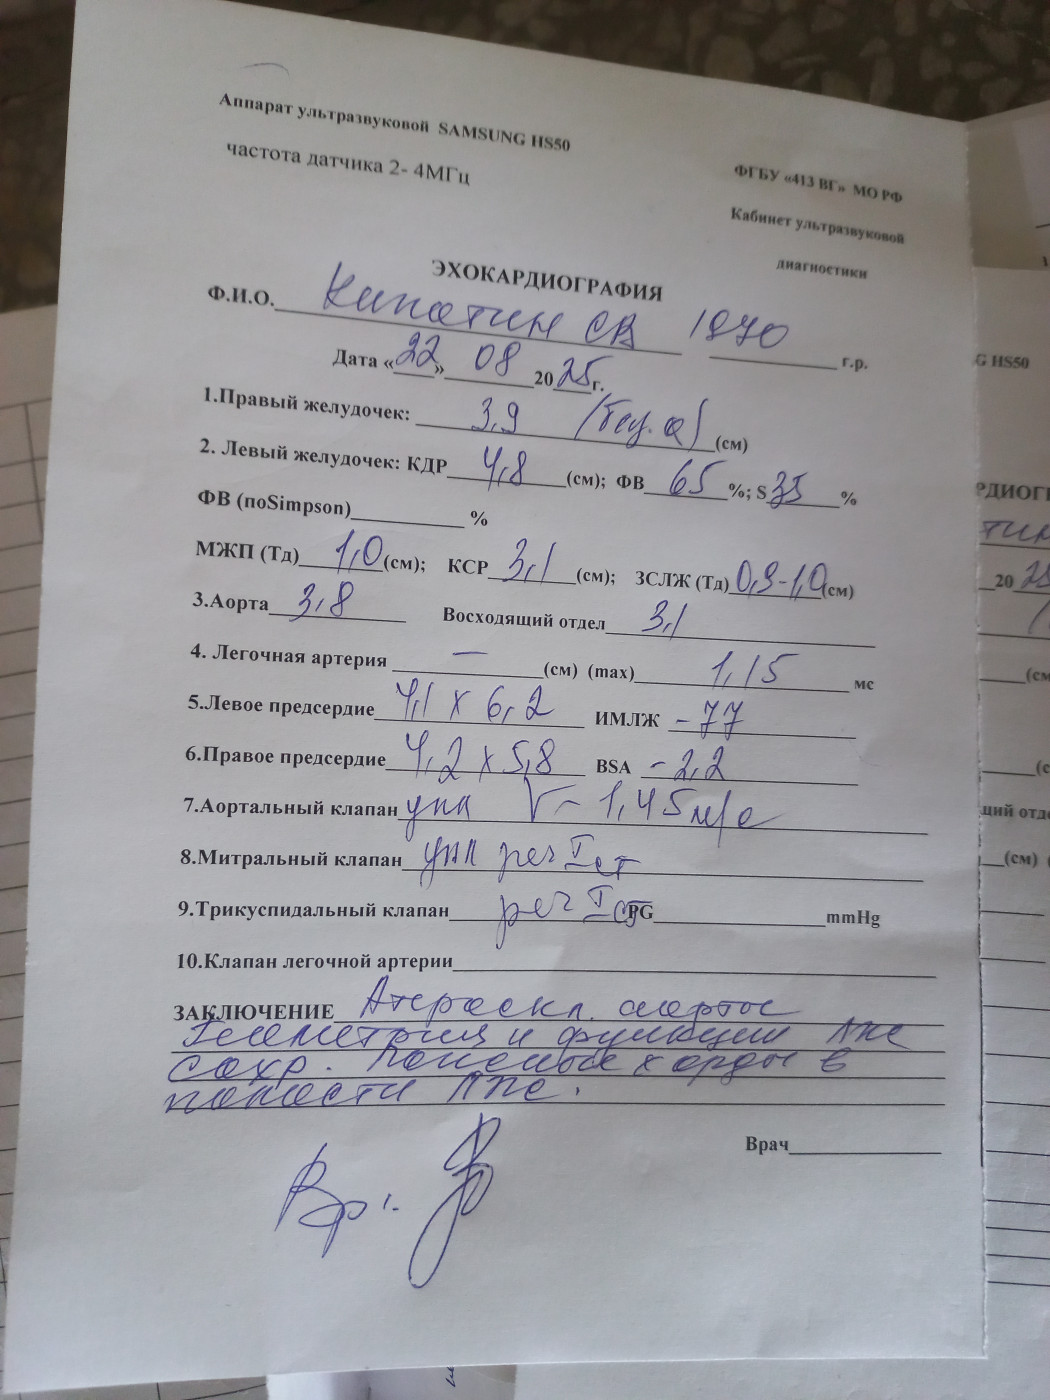 Аппарат ультразвуковой SAMSUNG HS50
частота датчика 2- 4МГц
ФГБУ «413 ВГ» МО РФ
Кабинет ультразвуковой
диагностики
ЭХОКАРДИОГРАФИЯ
Ф.И.О. СВ 1970 г.р.
Дата «22» 08 2025г.
1.Правый желудочек: 3,9 (см)
2. Левый желудочек: КДР 4,8 (см); ФВ 65 %; S 35 %
ФВ (поSimpson) %
МЖП (Тд) 1,0 (см); КСР 3,1 (см); ЗСЛЖ (Тд) 0,9-1,0 (см)
3.Аорта 3,8 Восходящий отдел 3,1
4. Легочная артерия — (см) (max) 1,15 мс
5.Левое предсердие 4,1 х 6,2 ИМЛЖ - 77
6.Правое предсердие 4,2 х 5,8 BSA - 2,2
7.Аортальный клапан упл V - 1,45 м/с
8.Митральный клапан упл рег I ст
9.Трикуспидальный клапан рег I ст PG mmHg
10.Клапан легочной артерии
ЗАКЛЮЧЕНИЕ Атероскл. аорты
Геометрия и функции ЛЖ
сохр. хорды в
полости ЛЖ.
Врач
Вр:
G HS50
20 25